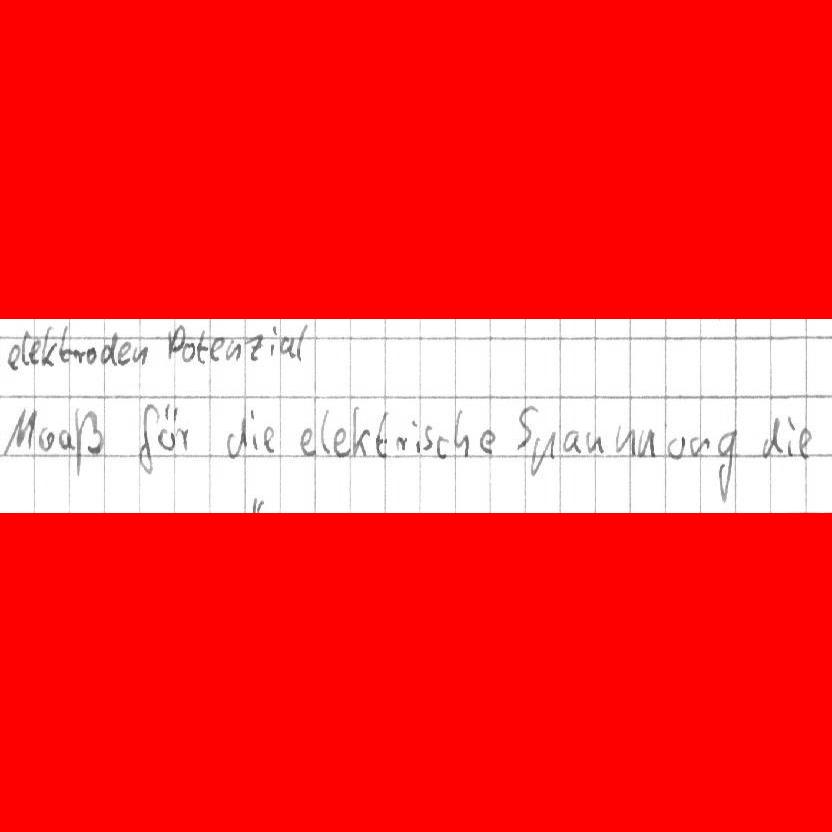 elektroden Potenzial
Maaß für die elektrische Spannung die